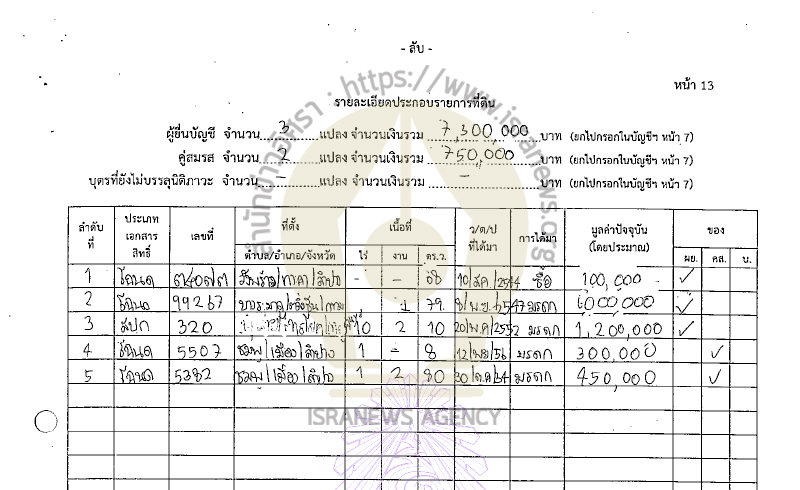 - ลับ -
หน้า 13
รายละเอียดประกอบรายการที่ดิน
ผู้ยื่นบัญชี จำนวน 3 แปลง จำนวนเงินรวม 7,300,000 บาท (ยกไปกรอกในบัญชีฯ หน้า 7)
คู่สมรส จำนวน 2 แปลง จำนวนเงินรวม 750,000 บาท (ยกไปกรอกในบัญชีฯ หน้า 7)
บุตรที่ยังไม่บรรลุนิติภาวะ จำนวน - แปลง จำนวนเงินรวม - บาท (ยกไปกรอกในบัญชีฯ หน้า 7)
ลำดับที่ ประเภทเอกสารสิทธิ์ เลขที่ ที่ตั้ง เนื้อที่ ว/ด/ป ที่ได้มา การได้มา มูลค่าปัจจุบัน (โดยประมาณ) ของ
ตำบล/อำเภอ/จังหวัด ไร่ งาน ตร.ว. ผย. คส. บ.
1 โฉนด - - 68 10/ส.ค./2544 ซื้อ 100,000 ✓
2 โฉนด 99267 1 79 มรดก 6000000 ✓
3 สปก 320 10 2 10 20/พ.ค/2552 มรดก 1,200,000 ✓
4 โฉนด 5507 ชมพู/เมือง/ลำปาง 1 - 8 มรดก 300,000 ✓
5 โฉนด 5382 ชมพู/เมือง/ลำปาง 1 2 80 30/ต.ค/54 มรดก 450,000 ✓
สำนักข่าวอิศรา : https://www.isranews.org
ISRANEWS AGENCY